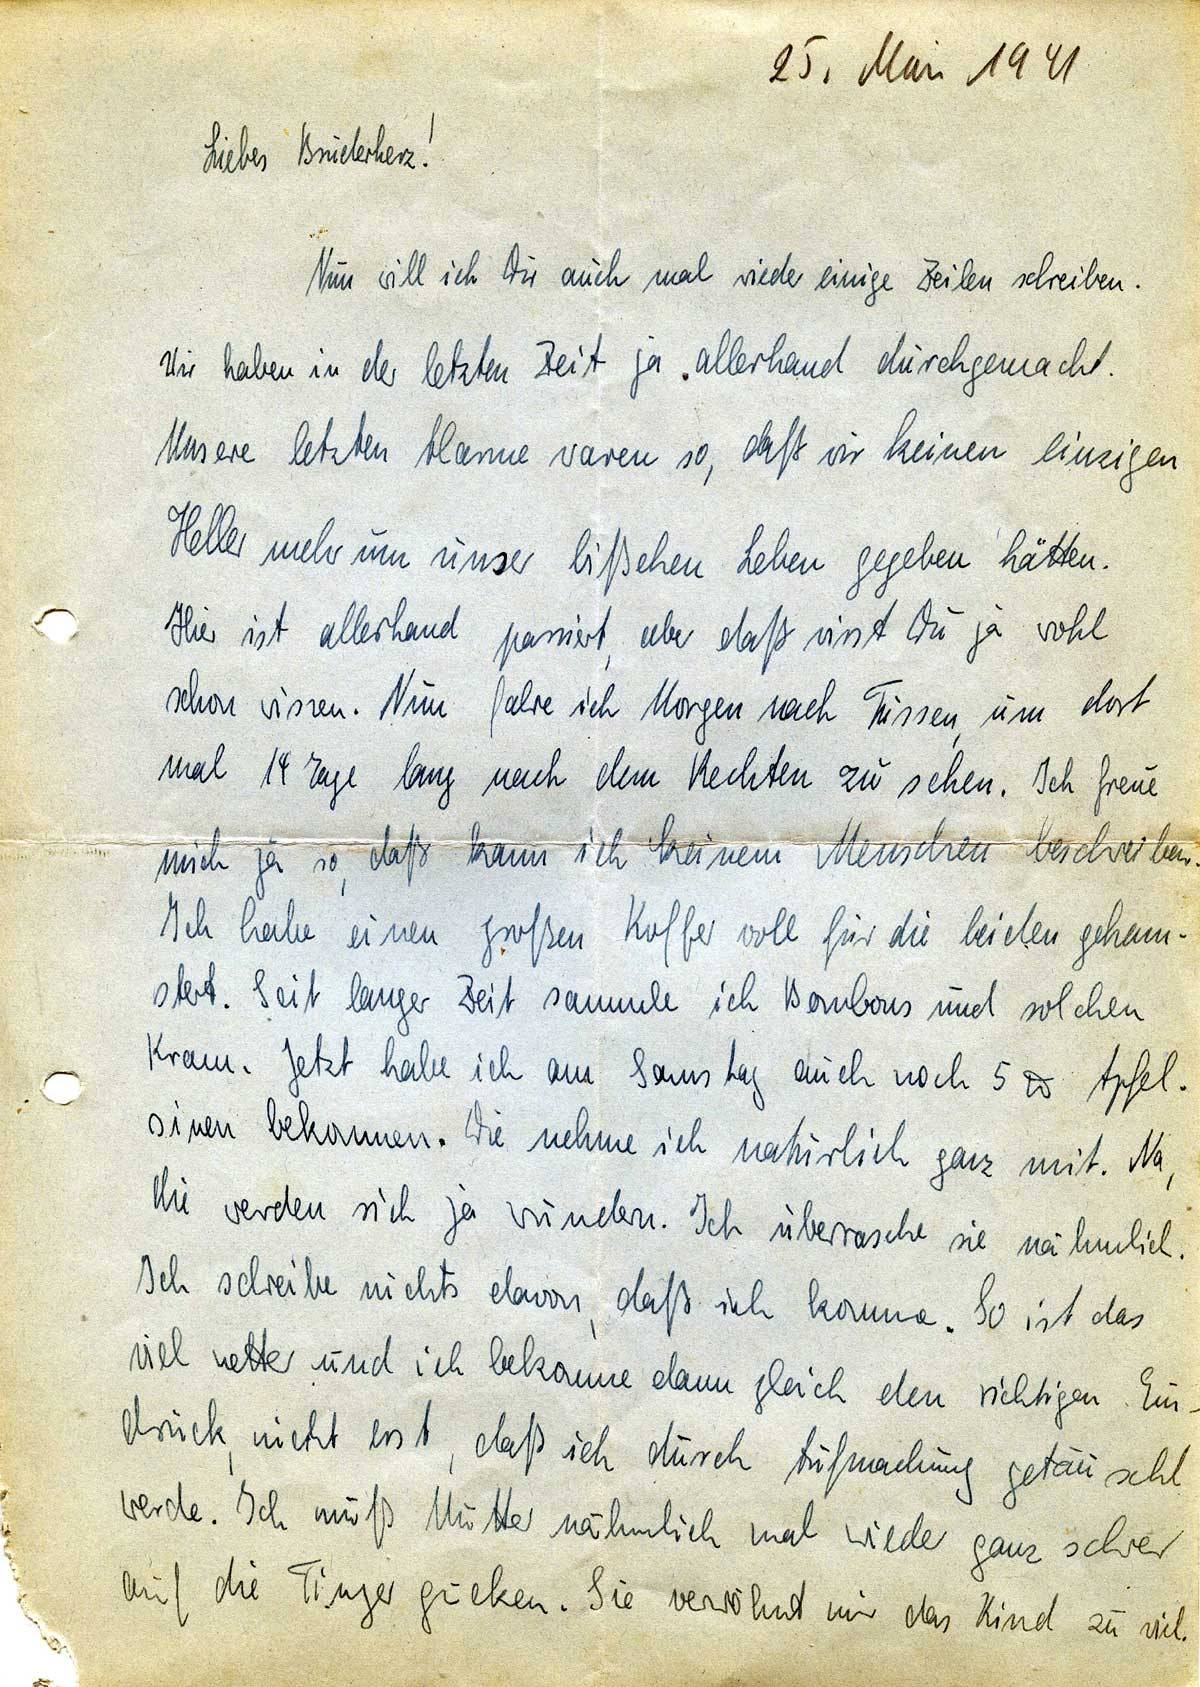 25. Mai 1941
Liebes Brüderherz!
Nun will ich Dir auch mal wieder einige Zeilen schreiben.
Wir haben in der letzten Zeit ja allerhand durchgemacht.
Unsere letzten Alarme waren so, daß wir keinen einzigen
Heller mehr um unser bißchen Leben gegeben hätten.
Hier ist allerhand passiert, aber daß wirst Du ja wohl
schon wissen. Nun fahre ich Morgen nach Füssen, um dort
mal 14 Tage lang nach dem Rechten zu sehen. Ich freue
mich ja so, daß kann ich keinem Menschen beschreiben.
Ich habe einen großen Koffer voll für die beiden geham-
stert. Seit langer Zeit sammle ich Bonbons und solchen
Kram. Jetzt habe ich am Samstag auch noch 5 Apfel-
sinen bekommen. Die nehme ich natürlich ganz mit. Na,
die werden sich ja wundern. Ich überrasche sie nähmlich.
Ich schreibe nichts davon, daß ich komme. So ist das
viel netter und ich bekomme dann gleich den richtigen Ein-
druck, nicht erst, daß ich durch Aufmachung getäuscht
werde. Ich muß Mutter nähmlich mal wieder ganz schwer
auf die Finger gucken. Sie verwöhnt mir das Kind zu viel.